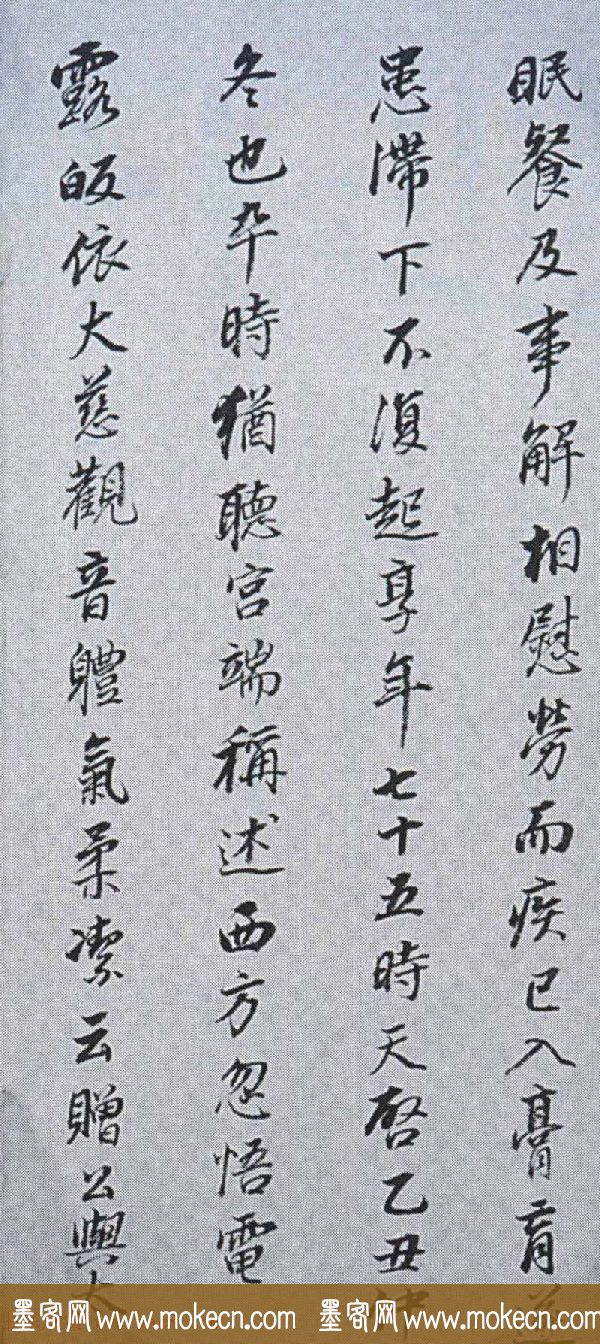 眠餐及事解相慰勞而疾已入膏肓
患滯下不復起享年七十五時天啓乙丑
冬也卒時猶聽宮端稱述西方忽悟電
露皈依大慈觀音體氣柔潔云贈公與大
墨客网www.mokecn.com 墨客网www.mokecn.com